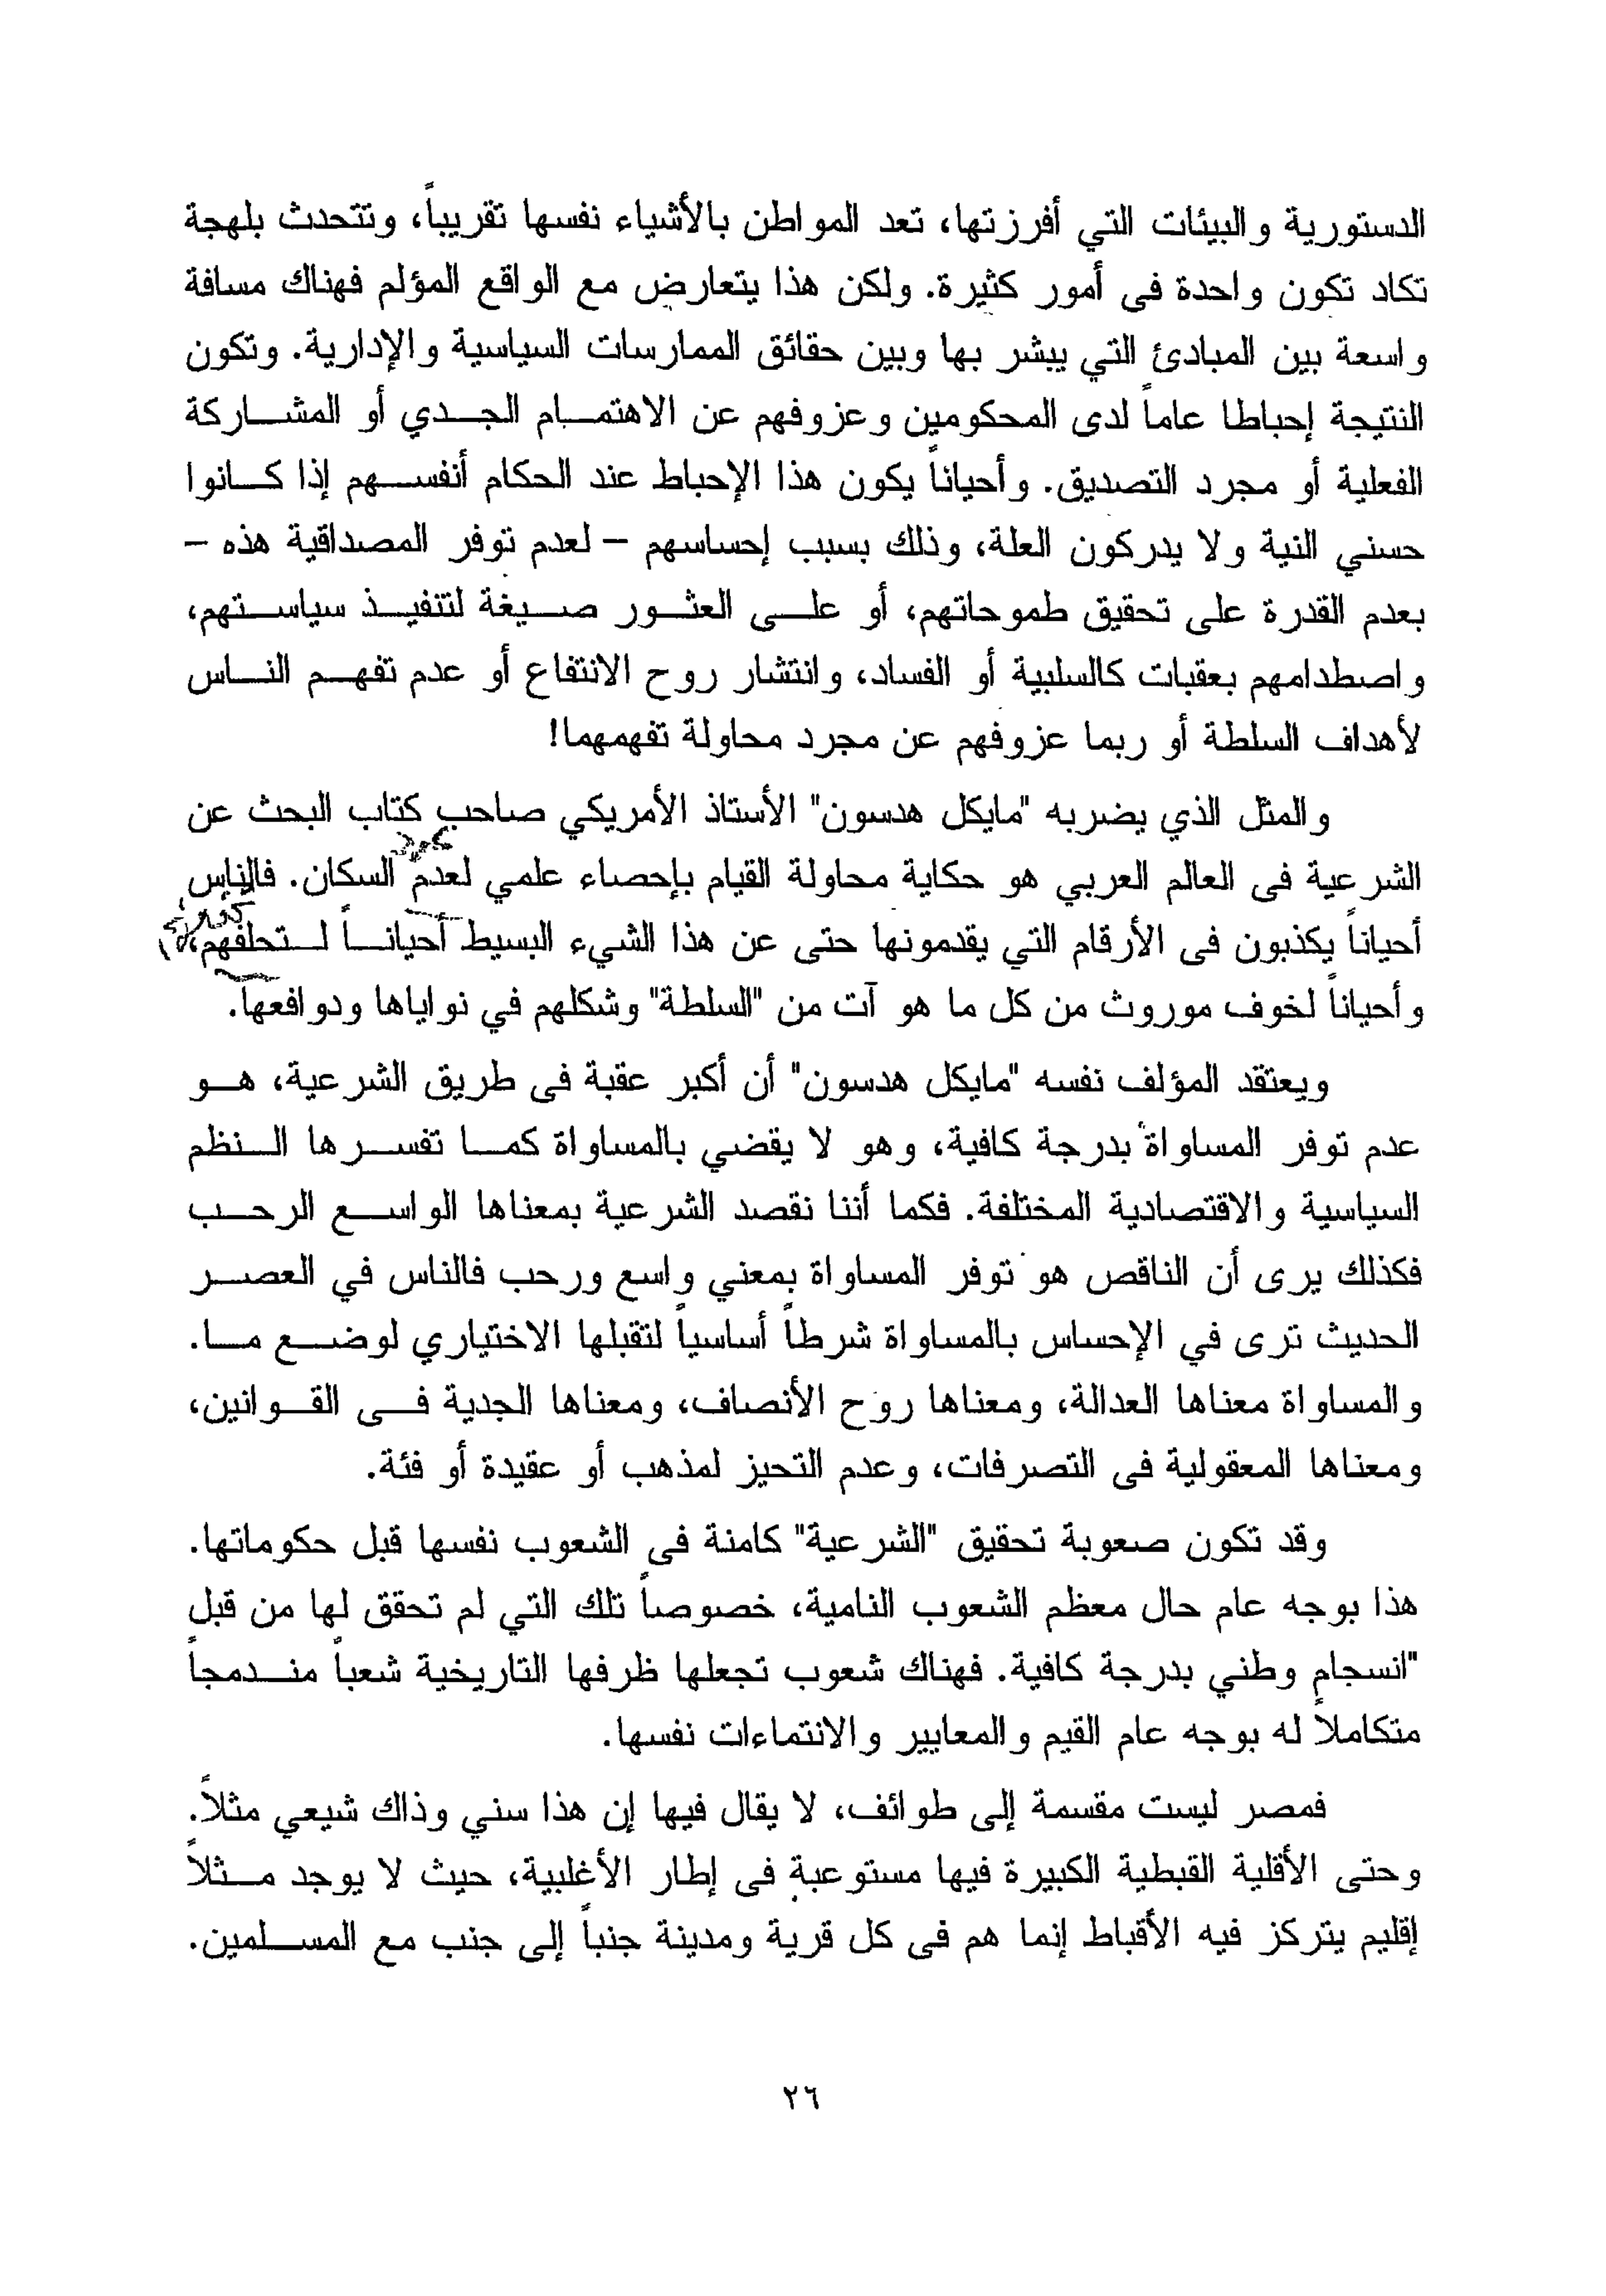 الدستورية والبيئات التي أفرزتها، تعد المواطن بالأشياء نفسها تقريباً، وتتحدث بلهجة
تكاد تكون واحدة فى أمور كثيرة. ولكن هذا يتعارض مع الواقع المؤلم فهناك مسافة
واسعة بين المبادئ التي يبشر بها وبين حقائق الممارسات السياسية والإدارية. وتكون
النتيجة إحباطا عاماً لدى المحكومين وعزوفهم عن الاهتمام الجدي أو المشاركة
الفعلية أو مجرد التصديق. وأحياناً يكون هذا الإحباط عند الحكام أنفسهم إذا كانوا
حسني النية ولا يدركون العلة، وذلك بسبب إحساسهم – لعدم توفر المصداقية هذه –
بعدم القدرة على تحقيق طموحاتهم، أو على العثور صيغة لتنفيذ سياستهم،
واصطدامهم بعقبات كالسلبية أو الفساد، وانتشار روح الانتفاع أو عدم تفهم الناس
لأهداف السلطة أو ربما عزوفهم عن مجرد محاولة تفهمهما!
والمثل الذي يضربه "مايكل هدسون" الأستاذ الأمريكي صاحب كتاب البحث عن
الشرعية فى العالم العربي هو حكاية محاولة القيام بإحصاء علمي لعدم السكان. فالناس
أحياناً يكذبون فى الأرقام التي يقدمونها حتى عن هذا الشيء البسيط أحياناً لتحلفهم،
وأحياناً لخوف موروث من كل ما هو آت من "السلطة" وشكلهم في نواياها ودوافعها.
ويعتقد المؤلف نفسه "مايكل هدسون" أن أكبر عقبة فى طريق الشرعية، هو
عدم توفر المساواة بدرجة كافية، وهو لا يقضي بالمساواة كما تفسرها النظم
السياسية والاقتصادية المختلفة. فكما أننا نقصد الشرعية بمعناها الواسع الرحب
فكذلك يرى أن الناقص هو توفر المساواة بمعني واسع ورحب فالناس في العصر
الحديث ترى في الإحساس بالمساواة شرطاً أساسياً لتقبلها الاختياري لوضع ما.
والمساواة معناها العدالة، ومعناها روح الأنصاف، ومعناها الجدية فى القوانين،
ومعناها المعقولية فى التصرفات، وعدم التحيز لمذهب أو عقيدة أو فئة.
وقد تكون صعوبة تحقيق "الشرعية" كامنة فى الشعوب نفسها قبل حكوماتها.
هذا بوجه عام حال معظم الشعوب النامية، خصوصاً تلك التي لم تحقق لها من قبل
"انسجام وطني بدرجة كافية. فهناك شعوب تجعلها ظرفها التاريخية شعباً مندمجاً
متكاملاً له بوجه عام القيم والمعايير والانتماءات نفسها.
فمصر ليست مقسمة إلى طوائف، لا يقال فيها إن هذا سني وذاك شيعي مثلاً.
وحتى الأقلية القبطية الكبيرة فيها مستوعبة فى إطار الأغلبية، حيث لا يوجد مثلاً
إقليم يتركز فيه الأقباط إنما هم فى كل قرية ومدينة جنباً إلى جنب مع المسلمين.
٢٦